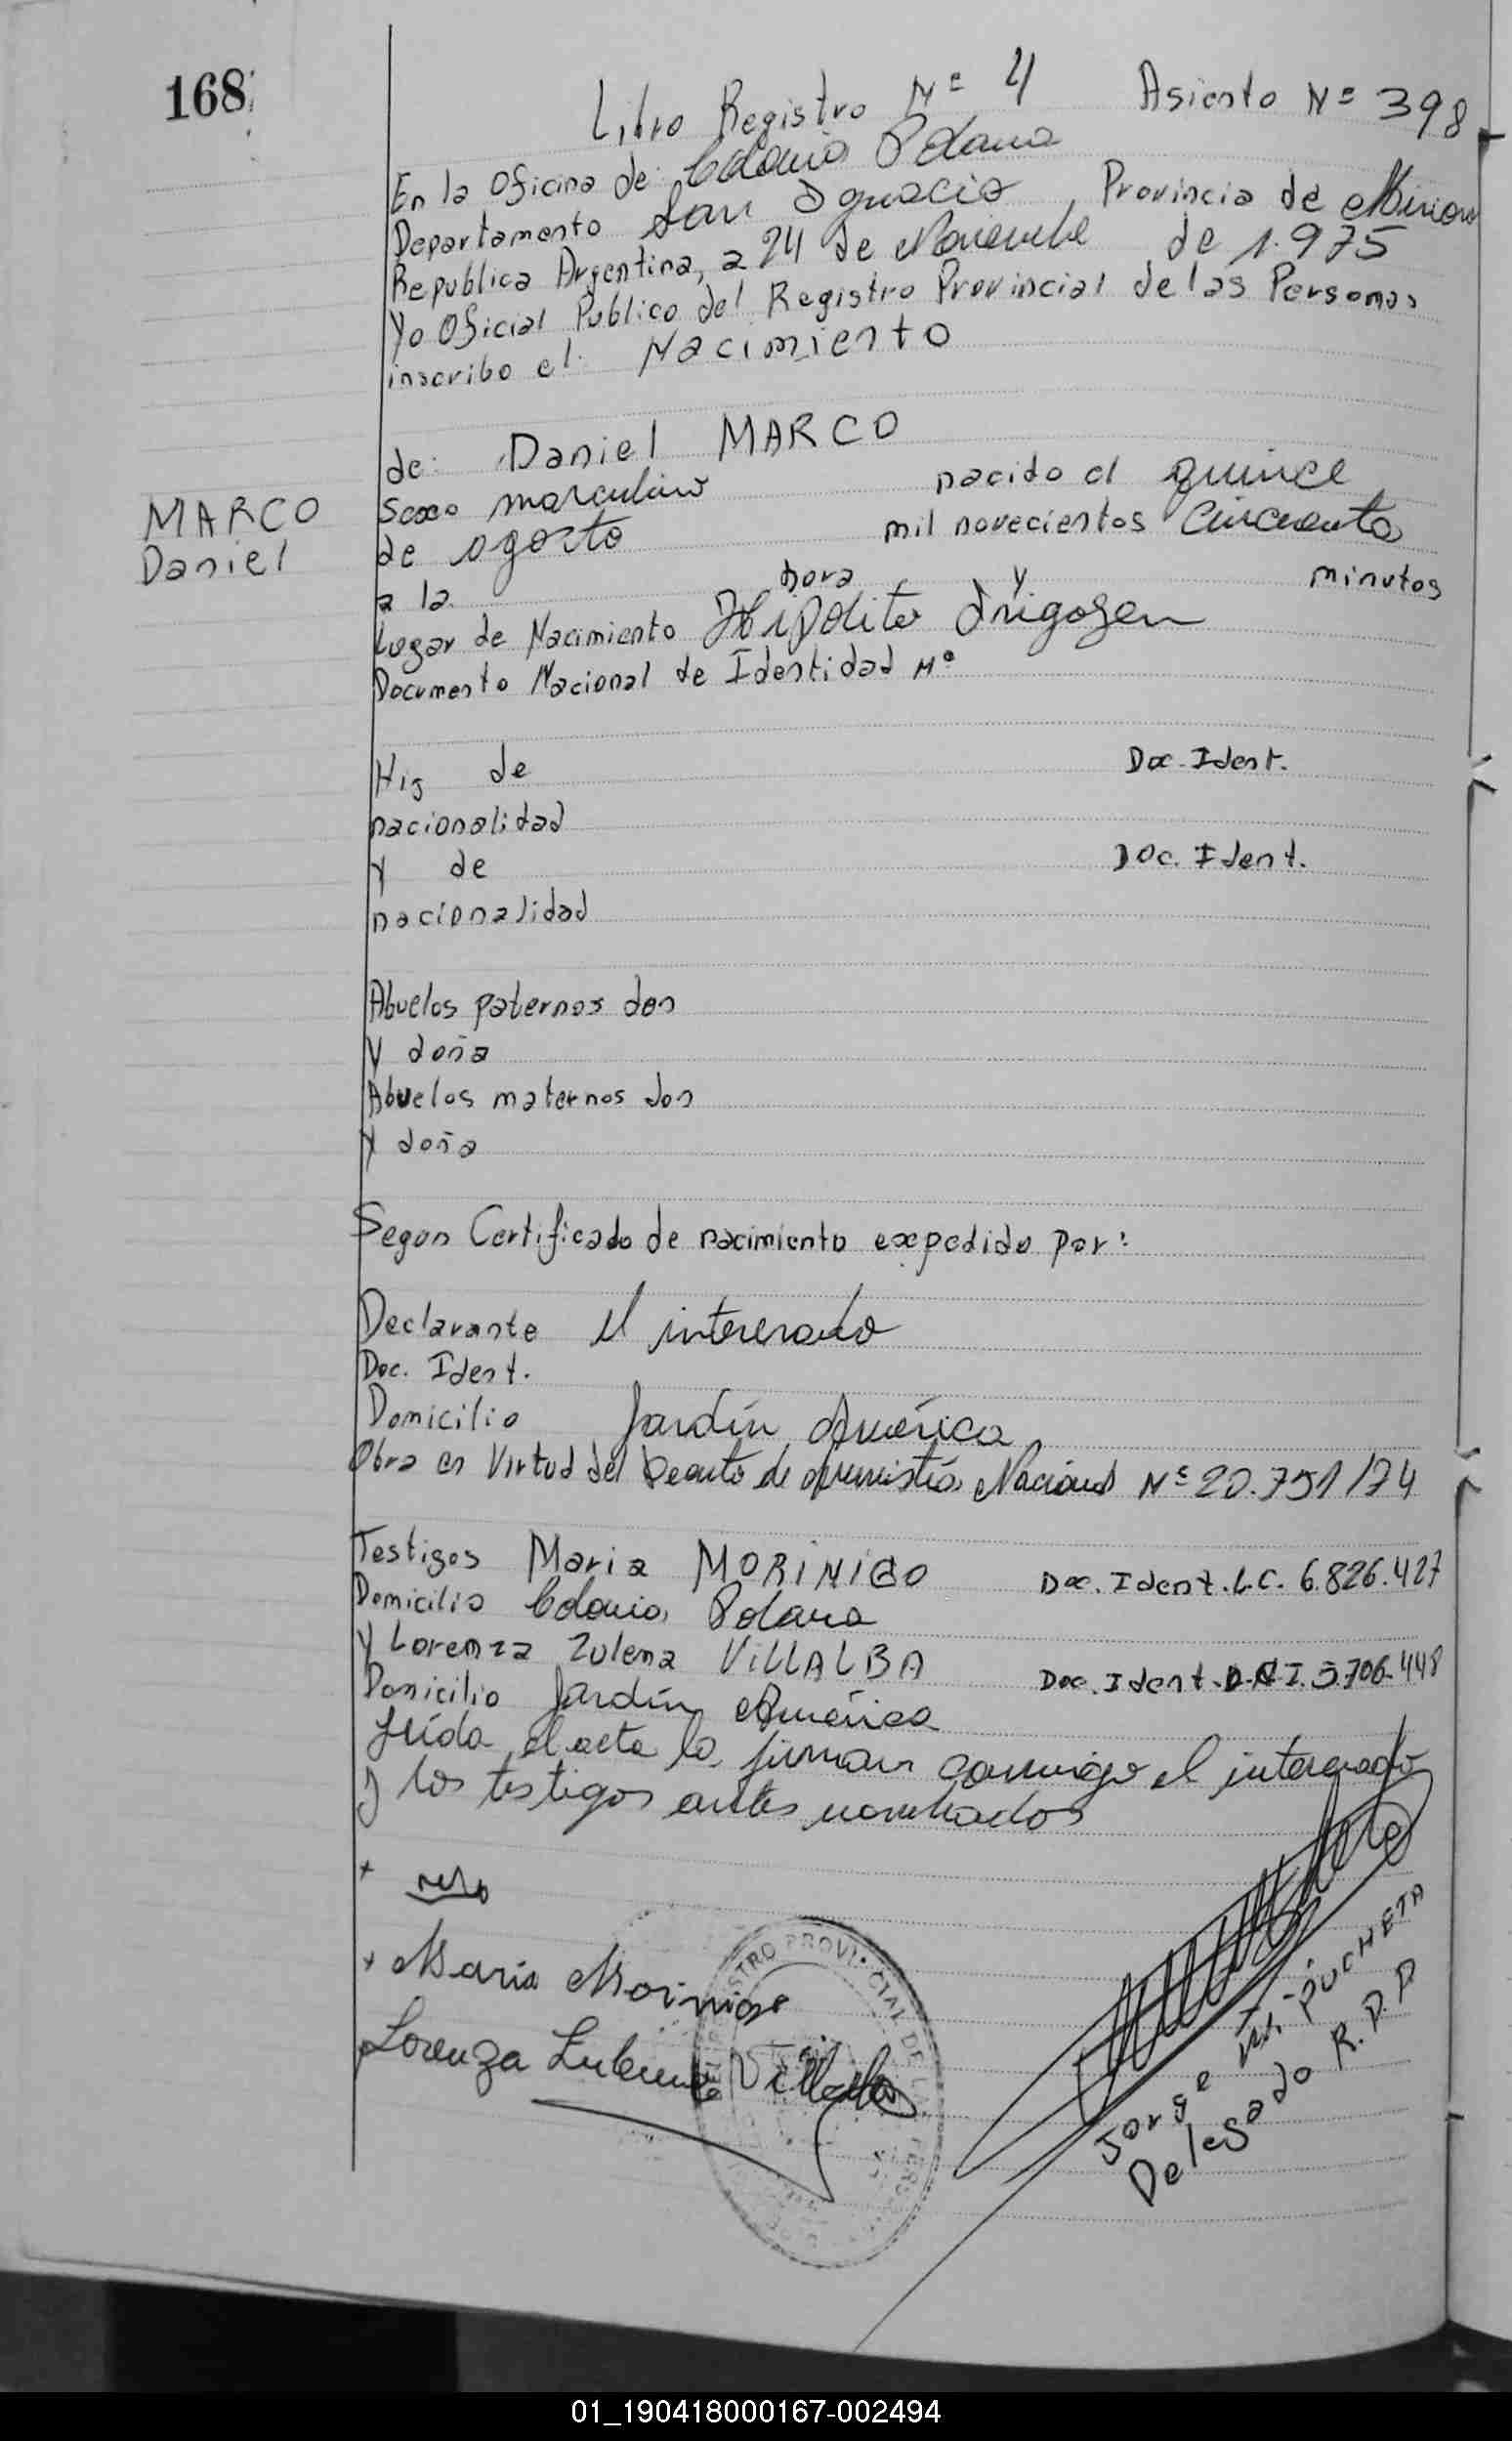 168
Libro Registro Nº 4 Asiento Nº 398
En la Oficina de: Colonia Polana
Departamento San Ignacio, Provincia de Misiones
Republica Argentina, a 24 de Noviembre de 1.975
Yo Oficial Publico del Registro Provincial de las Personas
inscribo el: Nacimiento
de: Daniel MARCO
MARCO
Daniel
Sexo masculino nacido el quince
de agosto mil novecientos cincuenta
a la hora y minutos
Lugar de Nacimiento Hipolito Irigoyen
Documento Nacional de Identidad Nº
Hij de Doc. Ident.
nacionalidad
y de Doc. Ident.
nacionalidad
Abuelos paternos don
y doña
Abuelos maternos don
y doña
Segun Certificado de nacimiento expedido por:
Declarante el interesado
Doc. Ident.
Domicilio Jardín América
Obra en Virtud del Decreto de Amnistía Nacional Nº 20.751/74
Testigos Maria MORINIGO Doc. Ident. L.C. 6.826.427
Domicilio Colonia Polana
y Lorenza Zulema VILLALBA Doc. Ident. D.N.I. 5.706.448
Domicilio Jardín América
Leída el acta la firman conmigo el interesado
y los testigos antes nombrados
+
+ Maria Morinigo
Lorenza Zulema Villalba
REGISTRO PROVINCIAL DE LAS PERSONAS
Jorge PUCHETA
Delegado R.P.P
01_190418000167-002494